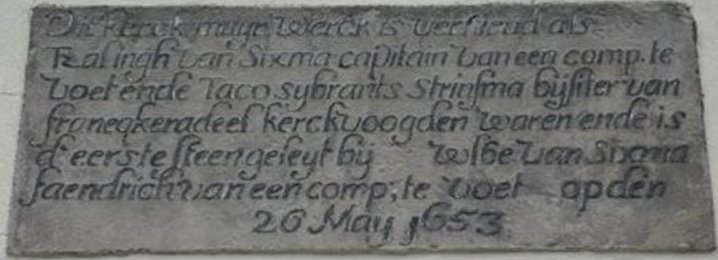 Dit kerck muyr werck is vernieud als
Tzalingh van Sixma capitain van een comp. te
voet ende Taco sybrants Strinsma bijsiter van
franeqkeradeel kerckvoogden waren ende is
d'eerste steen geleyt bij wlbe van Sixma
faendrich van een comp; te voet op den
26 May 1653